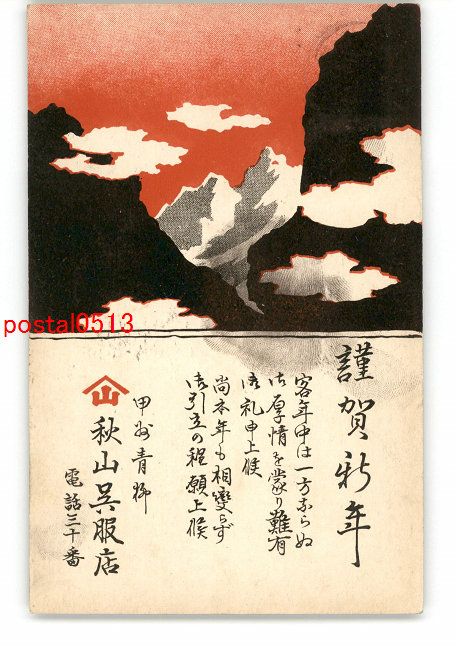 謹賀新年
客年中は一方ならぬ
御厚情を蒙り難有
御礼申上候
尚本年も相変らず
御引立の程願上候
甲州青柳
山
秋山呉服店
電話三十番
postal0513